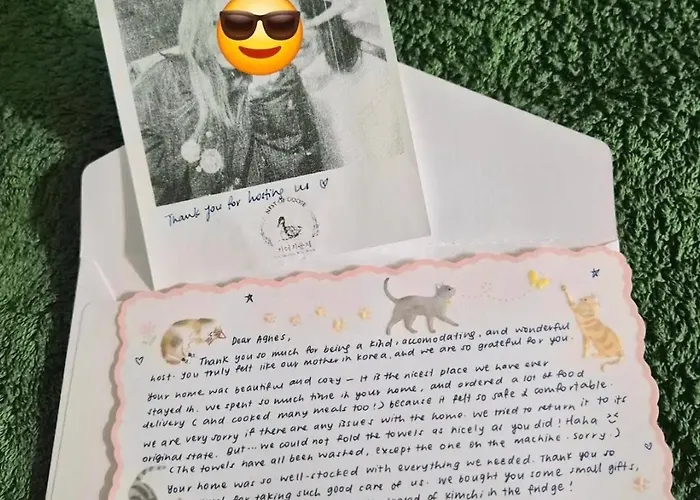 Thank you for hosting us ♡
Dear Agnes,
Thank you so much for being a kind, accomodating, and wonderful
host. You truly felt like our mother in Korea, and we are so grateful for you.
Your home was beautiful and cozy – it is the nicest place we have ever
stayed in. We spent so much time in your home, and ordered a lot of food
delivery (and cooked many meals too!) because it felt so safe & comfortable.
We are very sorry if there are any issues with the home. We tried to return it to its
original state. But... we could not fold the towels as nicely as you did! Haha
(The towels have all been washed, except the one on the machine. Sorry.)
Your home was so well-stocked with everything we needed. Thank you so
for taking such good care of us. We bought you some small gifts,
instead of kimchi in the fridge!